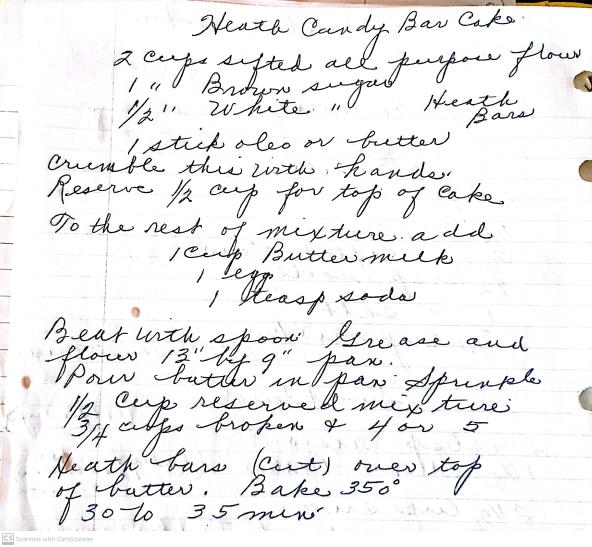 Heath Candy Bar Cake
2 cups sifted all purpose flour
1 " Brown sugar
1/2 " White " Heath Bars
1 stick oleo or butter
Crumble this with hands.
Reserve 1/2 cup for top of cake
To the rest of mixture add
1 cup Butter milk
1 egg
1 teasp soda
Beat with spoon Grease and
flour 13" by 9" pan.
Pour batter in pan Sprinkle
1/2 cup reserved mixture
3/4 cups broken & 4 or 5
Heath bars (cut) over top
of batter. Bake 350°
30 to 35 min.
CS Scanned with CamScanner